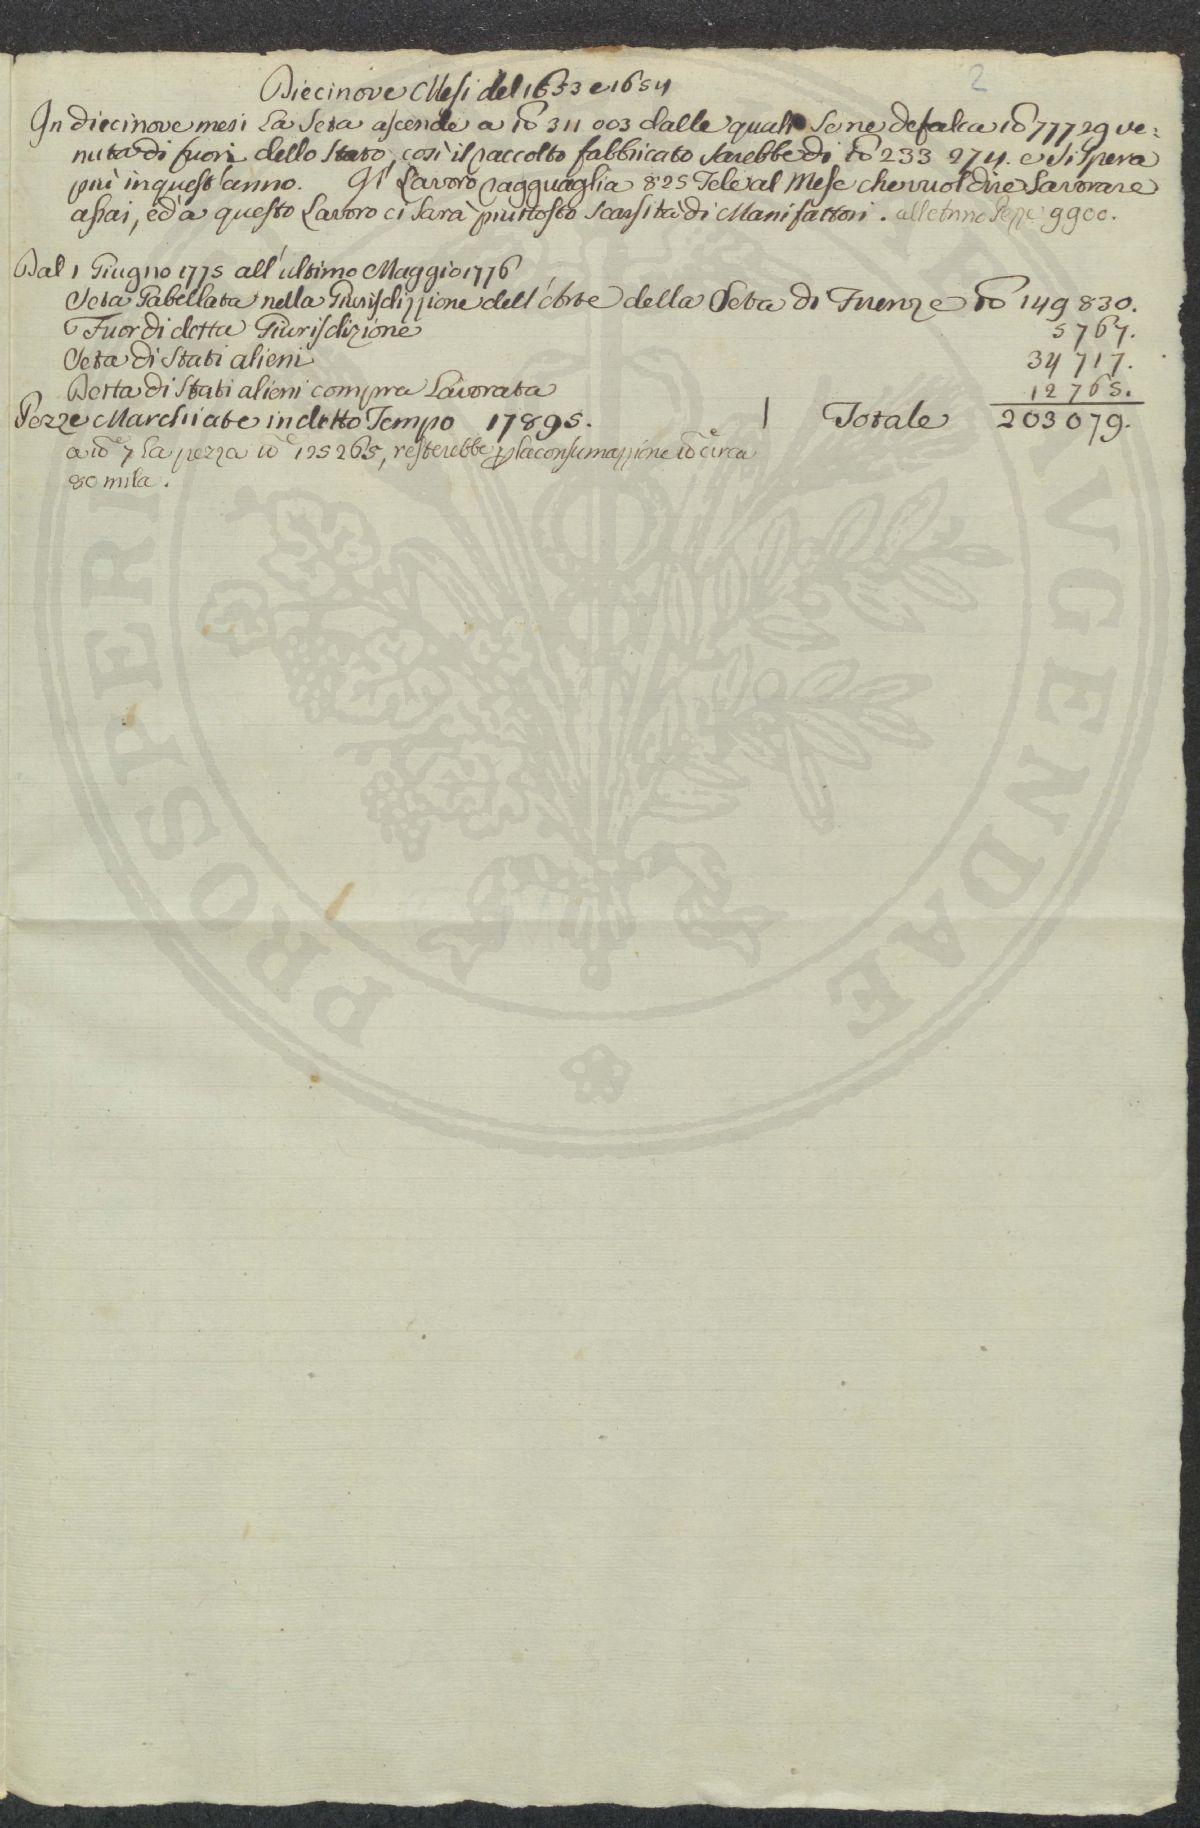 2
Diecinove Mesi del 1653 e 1654
In diecinove mesi La Seta ascende a lb 311 003 dalle quali Se ne defalca lb 77729 ve:
nuta di fuori dello Stato, così il raccolto fabbricato sarebbe di lb 233 274. e Si Spera
più in quest'anno. Il Lavoro ragguaglia 825 Tele al Mese che vuol dire Lavorare
assai, ed a questo Lavoro ci Sarà piuttosto Scarsità di Manifattori. all'Anno Pezze 9900.
Dal 1 Giugno 1775 all'ultimo Maggio 1776
Seta Gabellata nella Giurisdizzione dell'Arte della Seta di Firenze lb 149 830.
Fuor di detta Giurisdizione 5767.
Seta di Stati alieni 34 717.
Detta di Stati alieni compra Lavorata 12 765.
Pezze Marchiate in detto Tempo 17895. | Totale 203079.
a lb.e 7 La pezza lb.e 125265, resterebbe p la consumazzione lb.e circa
80 mila.
PROSPERITATI AVGENDAE